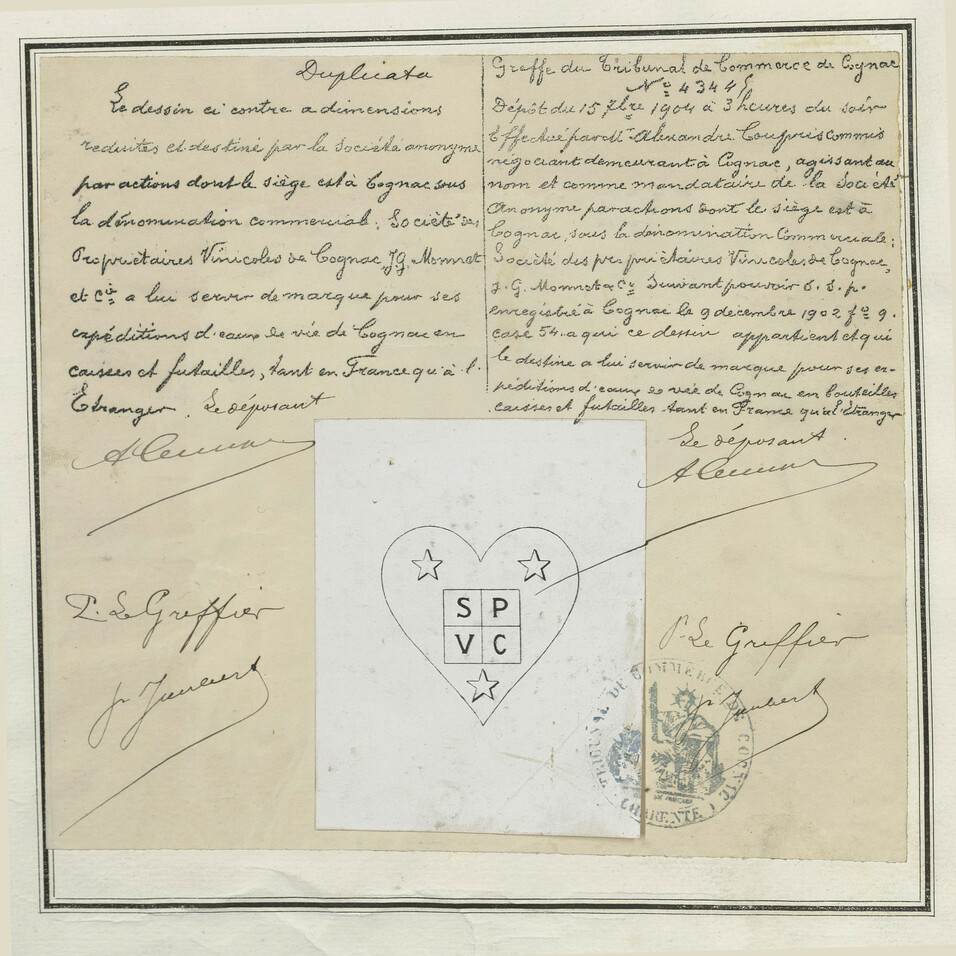 Duplicata
Le dessin ci contre a dimensions
reduites et destiné par la Société anonyme
par actions dont le siège est à Cognac sous
la dénomination commercial. Société des
Propriétaires Vinicoles de Cognac J.G. Monnet
et Cie a lui servir de marque pour ses
expéditions d'eaux de vie de Cognac en
caisses et futailles, tant en France qu'à l'
Etranger. Le déposant
P. Le Greffier
Greffe du Tribunal de Commerce de Cognac
No 4344
Dépôt du 15 7bre 1904 à 3 heures du soir
Effectué par Mr Alexandre Coupris commis
négociant demeurant à Cognac, agissant au
nom et comme mandataire de la Société
Anonyme par actions dont le siège est à
Cognac, sous la dénomination Commerciale:
Société des propriétaires Vinicoles de Cognac,
J. G. Monnet & Cie Suivant pouvoir S. S. p.
enregistré à Cognac le 9 décembre 1902 fo 9.
case 54. a qui ce dessin appartient et qui
le destine a lui servir de marque pour ses ex-
péditions d'eaux de vie de Cognac en bouteilles
caisses et futailles tant en France qu'a l'Etranger
Le déposant.
P. Le Greffier
S P
V C
TRIBUNAL DE COMMERCE DE COGNAC
(CHARENTE)